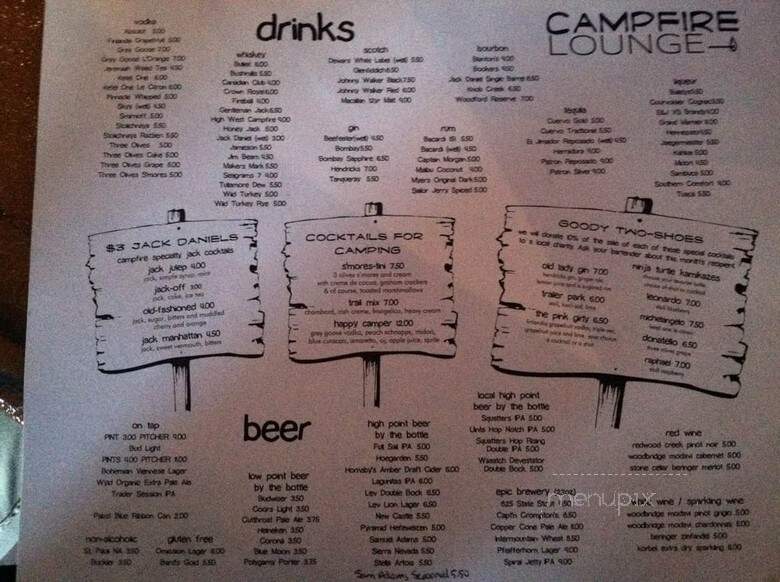 drinks
CAMPFIRE
LOUNGE
vodka
Absolut 5.00
Finlandia Grapefruit 5.00
Grey Goose 7.00
Grey Goose L'Orange 7.00
Jeremiah Weed Tea 4.50
Ketel One 6.00
Ketel One Le Citron 6.00
Pinnacle Whipped 5.00
Smirnoff 5.00
Stolichnaya 5.50
Stolichnaya Razberi 5.50
Three Olives 5.00
Three Olives Cake 5.00
Three Olives Grape 5.00
Three Olives S'mores 5.00
whiskey
Bulleit 6.00
Bushmills 5.50
Canadian Club 4.00
Crown Royal 6.00
Fireball 4.00
Gentleman Jack 6.50
High West Campfire 9.00
Honey Jack 5.00
Jack Daniel (well) 3.00
Jameson 5.50
Jim Beam 4.50
Makers Mark 5.50
Seagrams 7 4.00
Tullamore Dew 5.50
Wild Turkey 5.00
Wild Turkey Rye 5.00
scotch
Dewars White Label (well) 5.50
Glenfiddich 8.50
Johnny Walker Black 7.50
Johnny Walker Red 6.00
Macallan
bourbon
Blanton's 9.00
Bookers 9.00
Jack Daniel Single Barrel 6.50
Knob Creek 6.50
Woodford Reserve 7.00
gin
Beefeater (well) 4.50
Bombay 5.50
Bombay Sapphire 6.50
Hendricks 7.00
Tanqueray 5.50
rum
Bacardi 151 5.50
Bacardi (well) 4.50
Captain Morgan 5.00
Malibu Coconut 4.00
Myers Original Dark 5.00
Sailor Jerry Spiced 5.00
tequila
Cuervo Gold 5.00
Cuervo Traditional 5.50
El Jimador Reposado (well) 4.50
Herradura 9.00
Patron Reposado 9.00
Patron Silver 9.00
liqueur
Baileys 5.50
Courvoisier Cognac 8.50
E&J VS Brandy 4.00
Grand Marnier 6.00
Jaegermeister 5.50
Kahlua 5.00
Midori 4.50
Sambuca 5.00
Southern Comfort 4.00
Tuaca 5.50
$3 JACK DANIELS
campfire specialty jack cocktails
jack julep 4.00
jack, simple syrup, mint
jack-off 3.00
jack, coke, ice tea
old-fashioned 4.00
jack, sugar, bitters and muddled
cherry and orange
jack manhattan 4.50
jack, sweet vermouth, bitters
COCKTAILS FOR
CAMPING
s'mores-tini 7.50
3 olives s'mores and cream
with creme de cocoa, graham crackers
& of course, toasted marshmallows
trail mix 7.00
chambord, irish creme, frangelico, heavy cream
happy camper 12.00
grey goose vodka, peach schnapps, midori,
blue curacao, amaretto, oj, apple juice, sprite
GOODY TWO-SHOES
we will donate 10% of the sale of each of these special cocktails
to a local charity. Ask your bartender about this month's recipient
old lady gin 7.00
hendricks gin, ginger ale,
trailer park 6.00
the pink girly 6.50
finlandia grapefruit vodka, triple sec,
ninja turtle kamikazes
leonardo 7.00
michelangelo 7.50
donatello 6.50
three olives grape
raphael 7.00
stoli raspberry
beer
on tap
PINT 3.00 PITCHER 9.00
Bud Light
PINTS 4.00 PITCHER 11.00
Bohemian Viennese Lager
Wyld Organic Extra Pale Ale
Trader Session IPA
Pabst Blue Ribbon Can 2.00
non-alcoholic
St. Pauli NA 3.50
Buckler 3.50
gluten free
Omission Lager 6.00
Bard's Gold 5.50
low point beer
by the bottle
Budweiser 3.50
Coors Light 3.50
Cutthroat Pale Ale 3.75
Heineken 3.50
Corona 3.50
Blue Moon 3.50
Polygamy Porter 3.75
high point beer
by the bottle
Full Sail IPA 5.00
Hoegarden 5.50
Hornsby's Amber Draft Cider 6.00
Lagunitas IPA 6.00
Lev Double Bock 6.50
Lev Lion Lager 6.50
New Castle 5.50
Pyramid Hefeweizen 5.00
Samuel Adams 5.00
Sierra Nevada 5.50
Stella Artois 5.50
Sam Adams Seasonal 5.50
local high point
beer by the bottle
Squatters IPA 5.00
Uinta Hop Notch IPA 5.00
Squatters Hop Rising
Double IPA 5.00
Wasatch Devastator
Double Bock 5.00
epic brewery (22oz)
825 State Stout
Capt'n Crompton's 8.50
Copper Cone Pale Ale 8.00
Intermountain Wheat 8.50
Pfeifferhorn Lager 9.00
Spiral Jetty IPA 9.00
red wine
redwood creek pinot noir 5.00
woodbridge modavi cabernet 5.00
stone cellar beringer merlot 5.00
white wine / sparkling wine
woodbridge modavi pinot grigio 5.00
woodbridge modavi chardonnais 6.00
beringer zinfandel 5.00
korbel extra dry sparkling 8.00
menupix